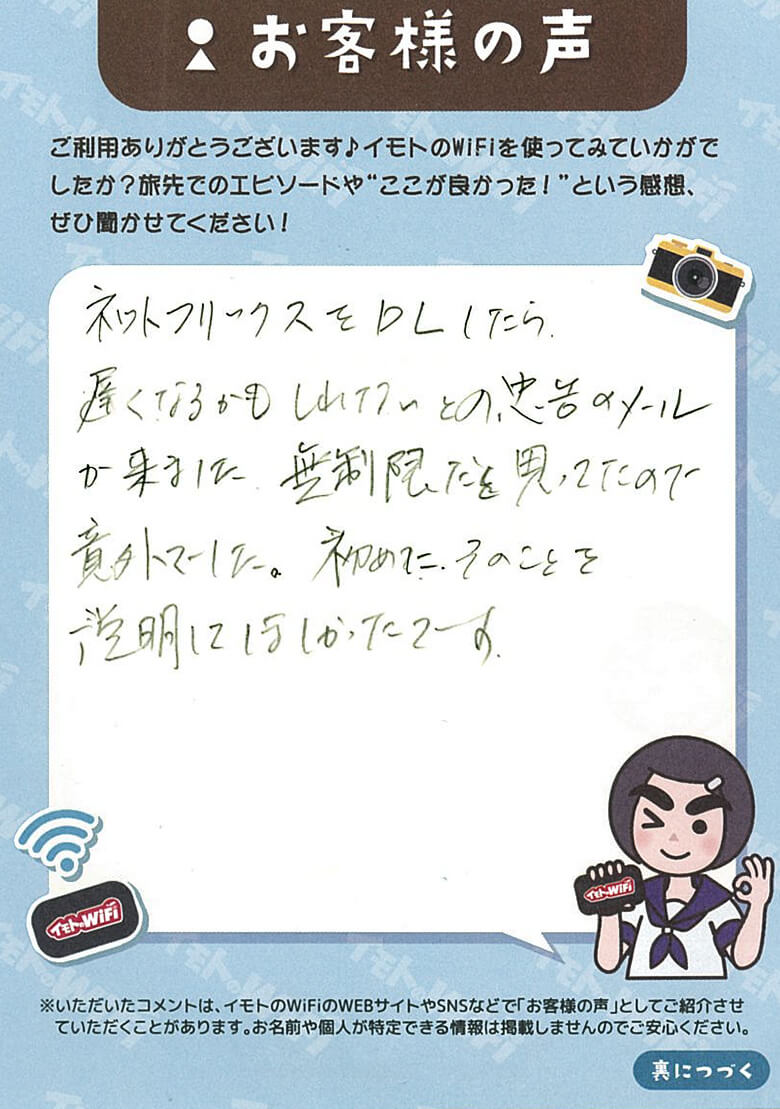 お客様の声
ご利用ありがとうございます♪イモトのWiFiを使ってみていかがで
したか？旅先でのエピソードや“ここが良かった！”という感想、
ぜひ聞かせてください！
ネットフリックスをDLしたら、
遅くなるかもしれないとの、忠告のメール
が来ました。無制限だと思ってたので
意外でした。初めに、そのことを
説明してほしかったです。
イモトのWiFi
イモトのWiFi
※いただいたコメントは、イモトのWiFiのWEBサイトやSNSなどで「お客様の声」としてご紹介させ
ていただくことがあります。お名前や個人が特定できる情報は掲載しませんのでご安心ください。
裏につづく